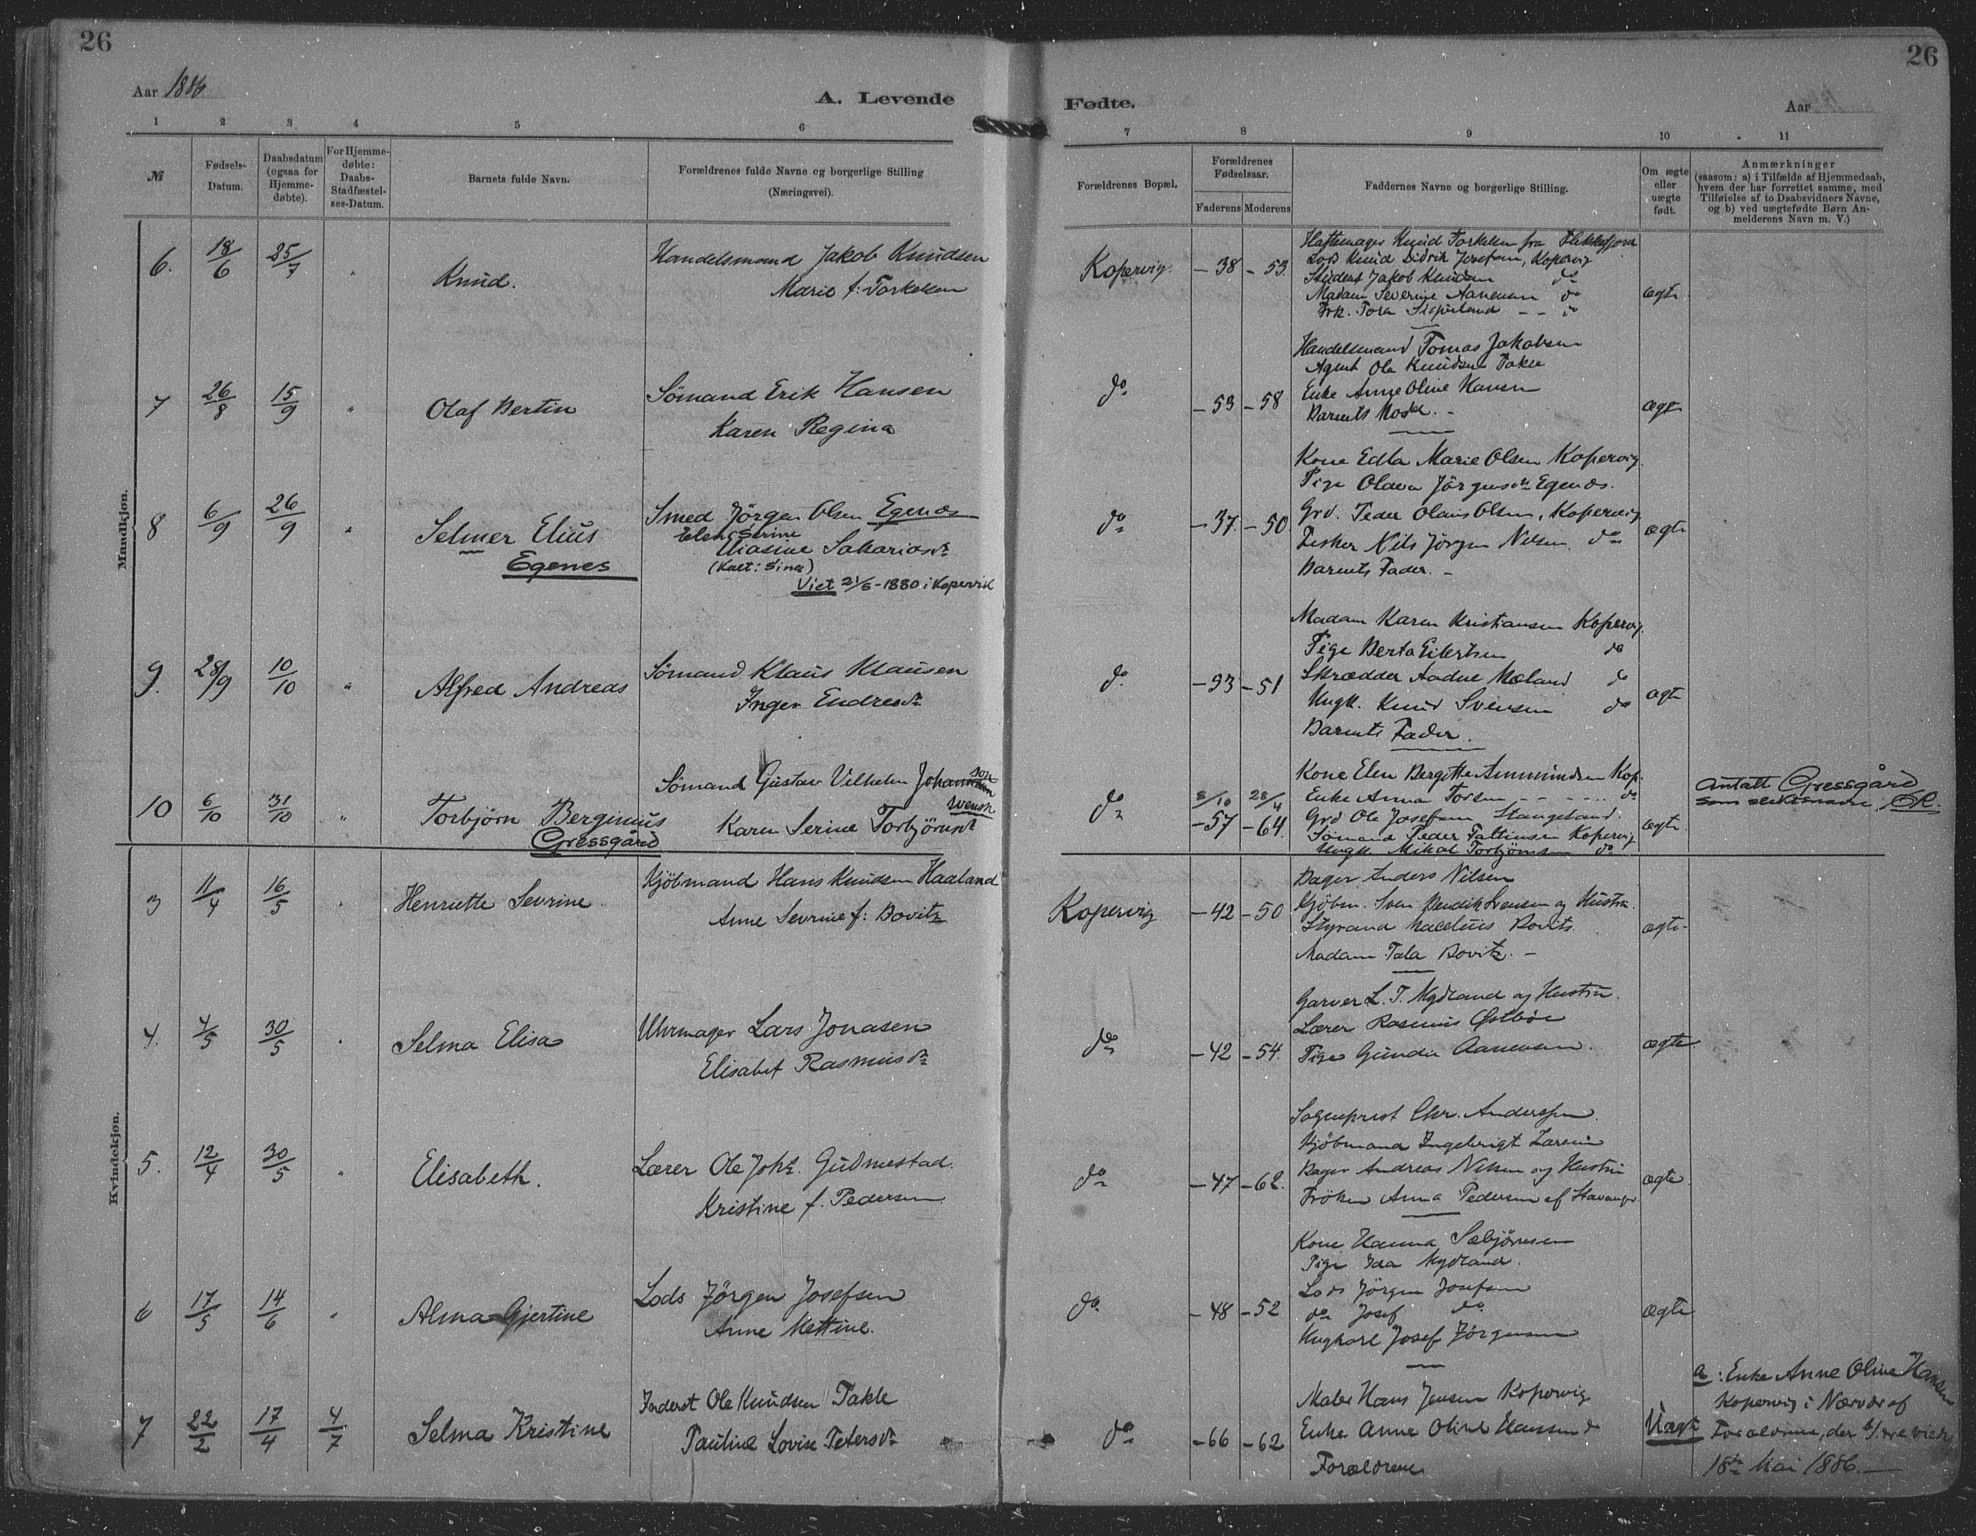 26
26
Aar 1886
A. Levende
Fødte.
Aar
1 2 3 4 5 6 7 8 9 10 11
№
Fødsels-
Datum.
Daabsdatum
(ogsaa for
Hjemme-
døbte).
For Hjemme-
døbte:
Daabs-
Stadfæstel-
ses-Datum.
Barnets fulde Navn.
Forældrenes fulde Navne og borgerlige Stilling
(Næringsvei).
Forældrenes Bopæl.
Forældrenes
Fødselsaar.
Faderens Moderens
Faddernes Navne og borgerlige Stilling.
Om ægte
eller
uægte
født.
Anmærkninger
(saasom: a) i Tilfælde af Hjemmedaab,
hvem der har forrettet samme, med
Tilføielse af to Daabsvidners Navne,
og b) ved uægtefødte Børn An-
melderens Navn m. V.)
Mandkjøn.
6. 18/6 25/7 "
Knud.
Handelsmand Jakob Knudsen
Marie f: Torkelsen
Kopervig. -38 -53
Hattemager Knud Torkelsen fra Flekkefjord
Lods Knud Didrik Josefsen, Kopervig
Student Jakob Knudsen do
Madam Severine Aanensen do
Frk. Tora -- do
ægte
7 26/8 15/9 "
Olaf Bertin
Sømand Erik Hansen
Karen Regina
do -53 -58
Handelsmand Tomas Jakobsen
Agent Ole Knudsen Takle
Enke Anne Oline Hansen
Barnets Moder. -
ægte
8 6/9 26/9 "
Selmer Elius
Egenes
Smed Jørgen Olsen Egenes
Elen Serine
Eliasine Sakariasdr
(kalt: Sina)
Viet 21/6-1880 i Kopervik
do -37 -50
Kone Edla Marie Olsen Kopervig.
Pige Olava Jørgensdr Egenæs.
Grd. Peder Olaus Olsen, Kopervig
Fisker Nils Jørgen Nilsen do
Barnets Fader. -
ægte
9. 28/9 10/10 "
Alfred Andreas
Sømand Klaus Klausen
Inger Endresdr
do -53 -51
Madam Karen Kristiansen Kopervig.
Pige Berta Eilertsen do
Skrædder Aadne Mæland do
Ungk. Knud Svensen do
Barnets Fader.
ægte
10 6/10 31/10 "
Torbjørn Berginius
Gressgård
Sømand Gustav Vilhelm Johansson
svensk
Karen Serine Torbjørnsdr
do 8/10 28/4
-57 -64
Kone Elen Bergitte Ammundsen Kop.
Enke Anna Torsen ---- do
Grd Ole Josefsen Stangeland.
Sømand Peder Faltinsen Kopervig
Ungk. Mikal Torbjørnsen do
ægte
Antatt Gressgård
som slektsnavn
Kvindekjøn.
3 11/4 16/5 "
Henriette Sevrine
Kjøbmand Hans Knudsen Haaland
Anne Sevrine f: Bovitz
Kopervig -42 -50
Bager Anders Nilsen
Kjøbm. Sven Bendik Svensen og Hustru.
Styrmand Bovits
Madam Tala Bovitz. -
ægte
4. 4/5 30/5 "
Selma Elisa
Uhrmager Lars Jonasen
Elisabet Rasmusdr
do -42 -54.
Garver L. T. Nydland og Hustru.
Lærer Rasmus Østbøe
Pige Gunda Aanensen.
ægte
5. 12/4 30/5 "
Elisabeth.
Lærer Ole Johs. Gudmestad.
Kristine f. Pedersen
do -47 -62.
Sogneprest Chr. Anderssen.
Kjøbmand Ingebrigt Larsen
Bager Andreas Nilsen og Hustru
Frøken Anna Pedersen af Stavanger
ægte
6 17/5 14/6 "
Alma Gjertine
Lods Jørgen Josefsen
Anne Mettine.
do -48 -52
Kone Hanna Sæbjørnsen
Pige Ida Nydland.
Lods Jørgen Josefsen
do Josef do
Ungkarl Josef Jørgensen
ægte
7 22/2 17/4 4/7
Selma Kristine
Inderst Ole Knudsen Takle
Pauline Lovise Petersdr
do -66 -62
Maler Hans Jensen Kopervig
Enke Anne Oline Hansen do
Forældrene
Uægte
a: Enke Anne Oline Hansen
Kopervig i Nærvær af
Forældrene, der bl. ere viede
18de Mai 1886. -